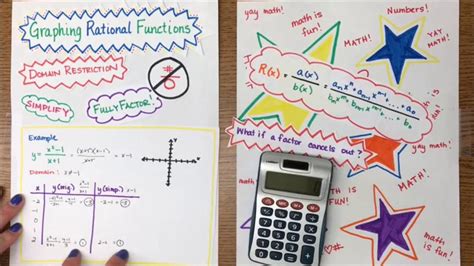 Graphing Rational Functions
DOMAIN RESTRICTION
#/0
SIMPLIFY
FULLY FACTOR!
Example
y = x²-1/x+1 = (x+1)(x-1)/x+1 = x-1
Domain: x≠-1
x | y (orig) x²-1/x+1 | y (simp.) x-1
-2 | = -3 | -2-1 = -3
-1
0
1
2 | = 1 | 2-1 = 1
yay math!
math is fun!
Numbers!
MATH!
YAY MATH!
R(x) = a(x)/b(x) = aₙxⁿ+aₙ₋₁xⁿ⁻¹+...+a₀/bₘxᵐ+bₘ₋₁xᵐ⁻¹+...+b₀
What if a factor cancels out?
yay math!
yay math!
math is fun!
MATH!
MATH IS FUN!
yay math!